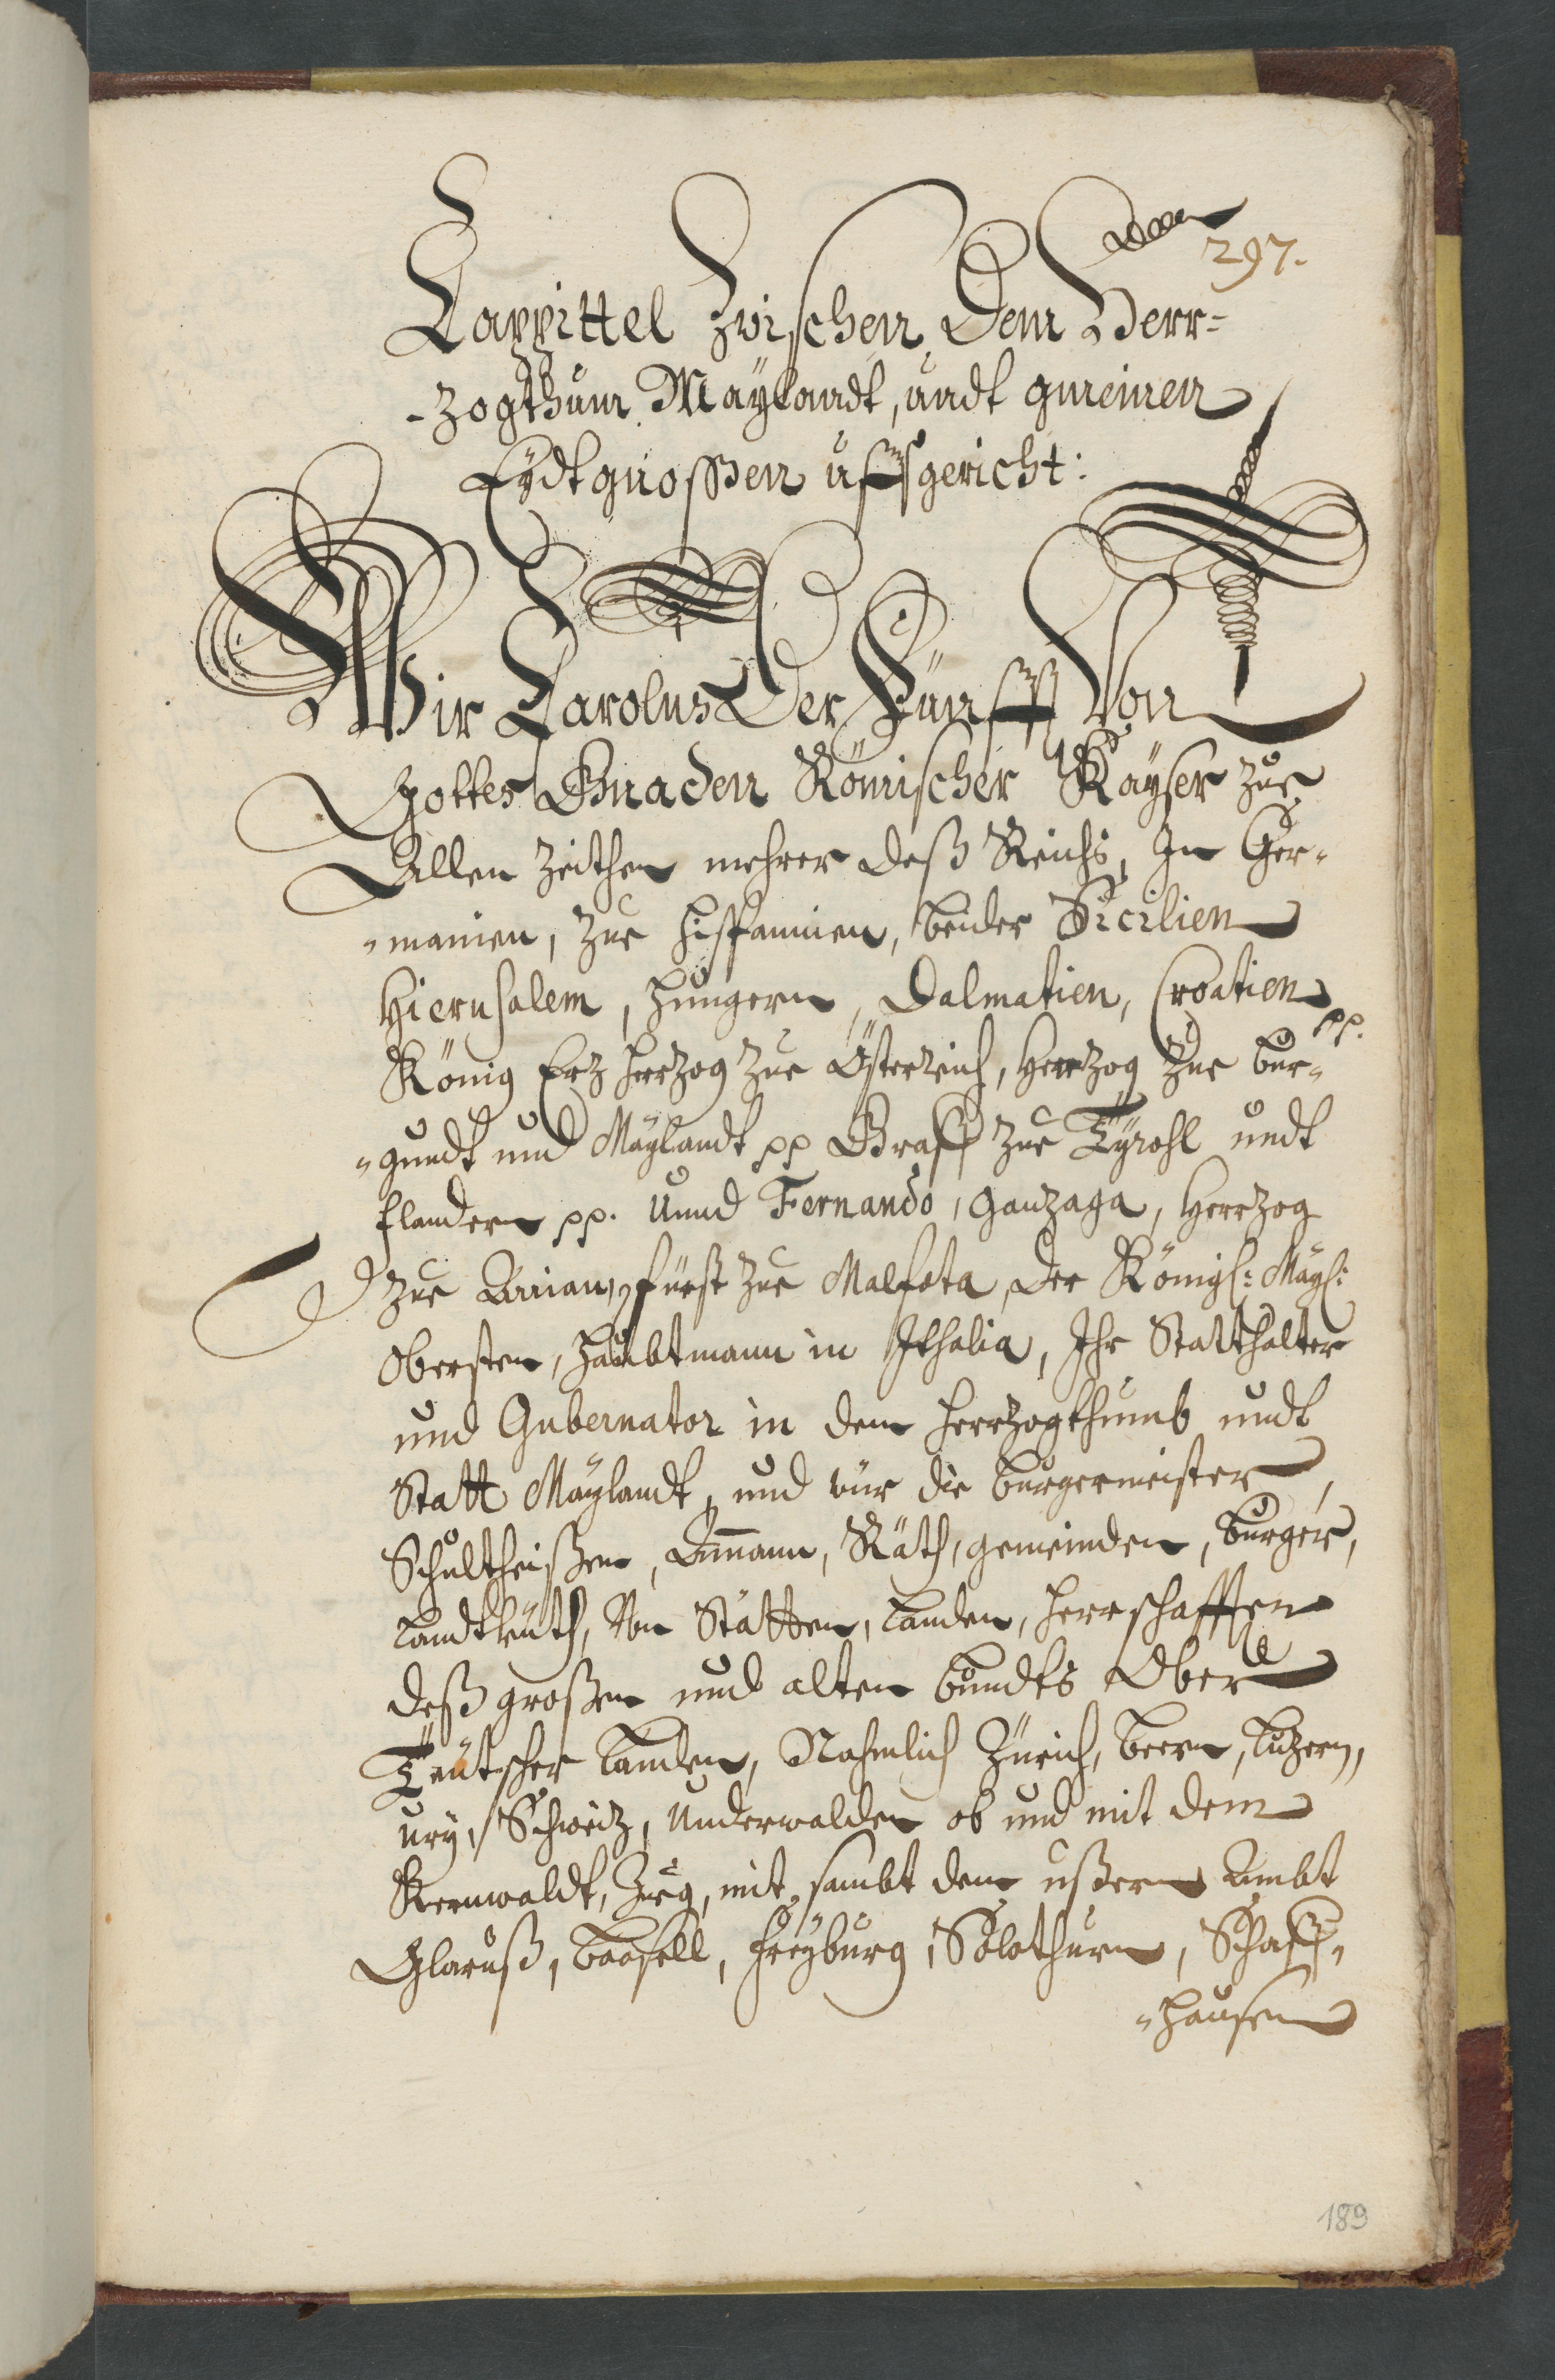 297.
Cappittel Zwischen Dem Herr-
-zogthum Maylandt, undt gmeinen
Eydtgnossen uffgericht:
Wir Carolus Der Fünfft Von
Gottes Gnaden Römischer Kayser zue
Allen Zeithen mehrer deß Reichs, In Ger-
-manien, zue Hispannien, beider Sicilien
Hierusalem, Hungern, Dalmatien, Croatien pp.
König Erz Herzog zue Österreich, Herzog zue Bur-
-gundt und Maylandt pp Graff zue Tyrohl undt
flandern pp. Unnd Fernando, Ganzaga, Herrzog
zue Arian, fürst zue Malfota, der Königl: Mayl:
Obersten, Haubtmann in Ithalia, Ihr Statthalter
und Gubernator in dem Herrzogthumb undt
Statt Maylandt, und wür die burgermeister,
Schultheißen, Ammann, Räth, gemeinden, burger,
Landtleüth, Von Stätten, Landen, Herrschafften
deß großen und alten bundts Ober
Teütscher Landen, Nahmlich Zürich, Beern, Luzern,
Ury, Schweitz, Underwalden ob und nit dem
Kernwaldt, Zug, mit sambt dem ußern Ambt
Glaruß, Baasell, Freyburg, Solothurn, Schaff-
-hausen
189